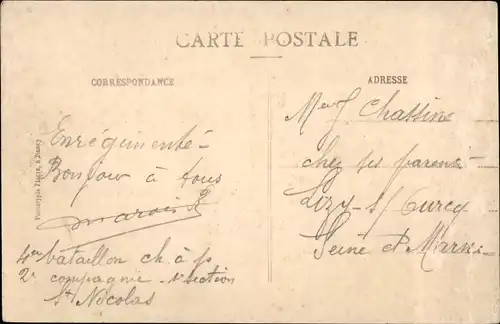 CARTE POSTALE
CORRESPONDANCE
ADRESSE
Enrégimenté -
Bonjour à tous
4me bataillon ch. à p.
2e compagnie - section
St Nicolas
Chassine
chez ses parents
Lizy-s/Ourcq
Seine et Marne